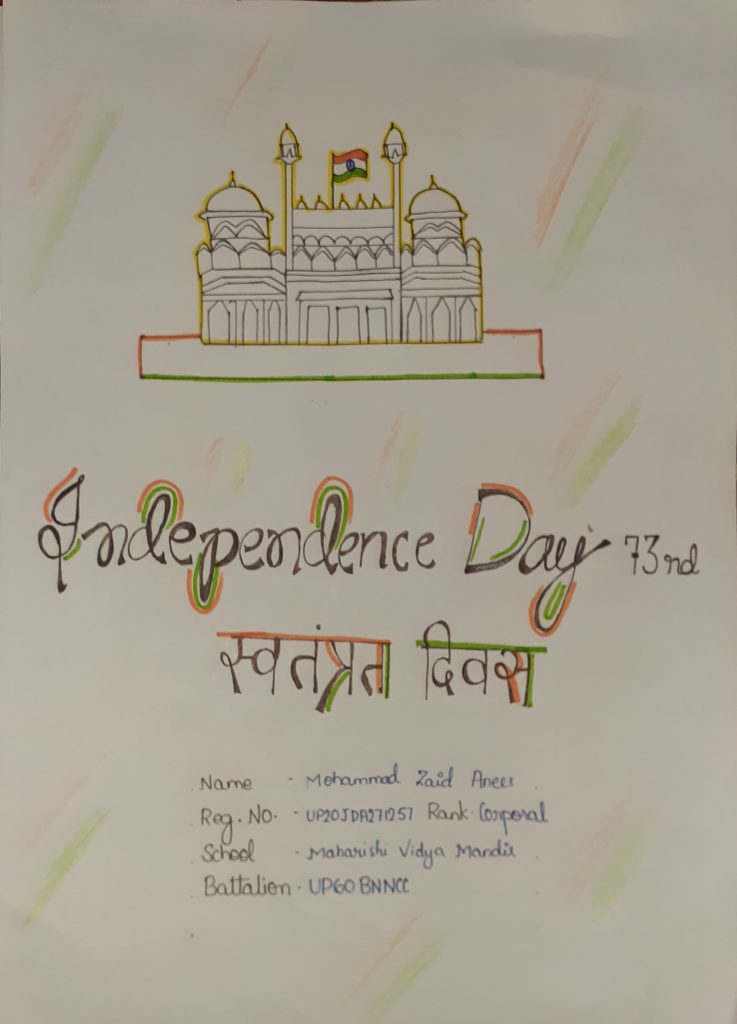 Independence Day 73rd
स्वतंत्रता दिवस
Name - Mohammad Zaid Anees
Reg. No. - UP20JDA271257 Rank- Corporal
School - Maharishi Vidya Mandir
Battalion - UP60 BNNCC